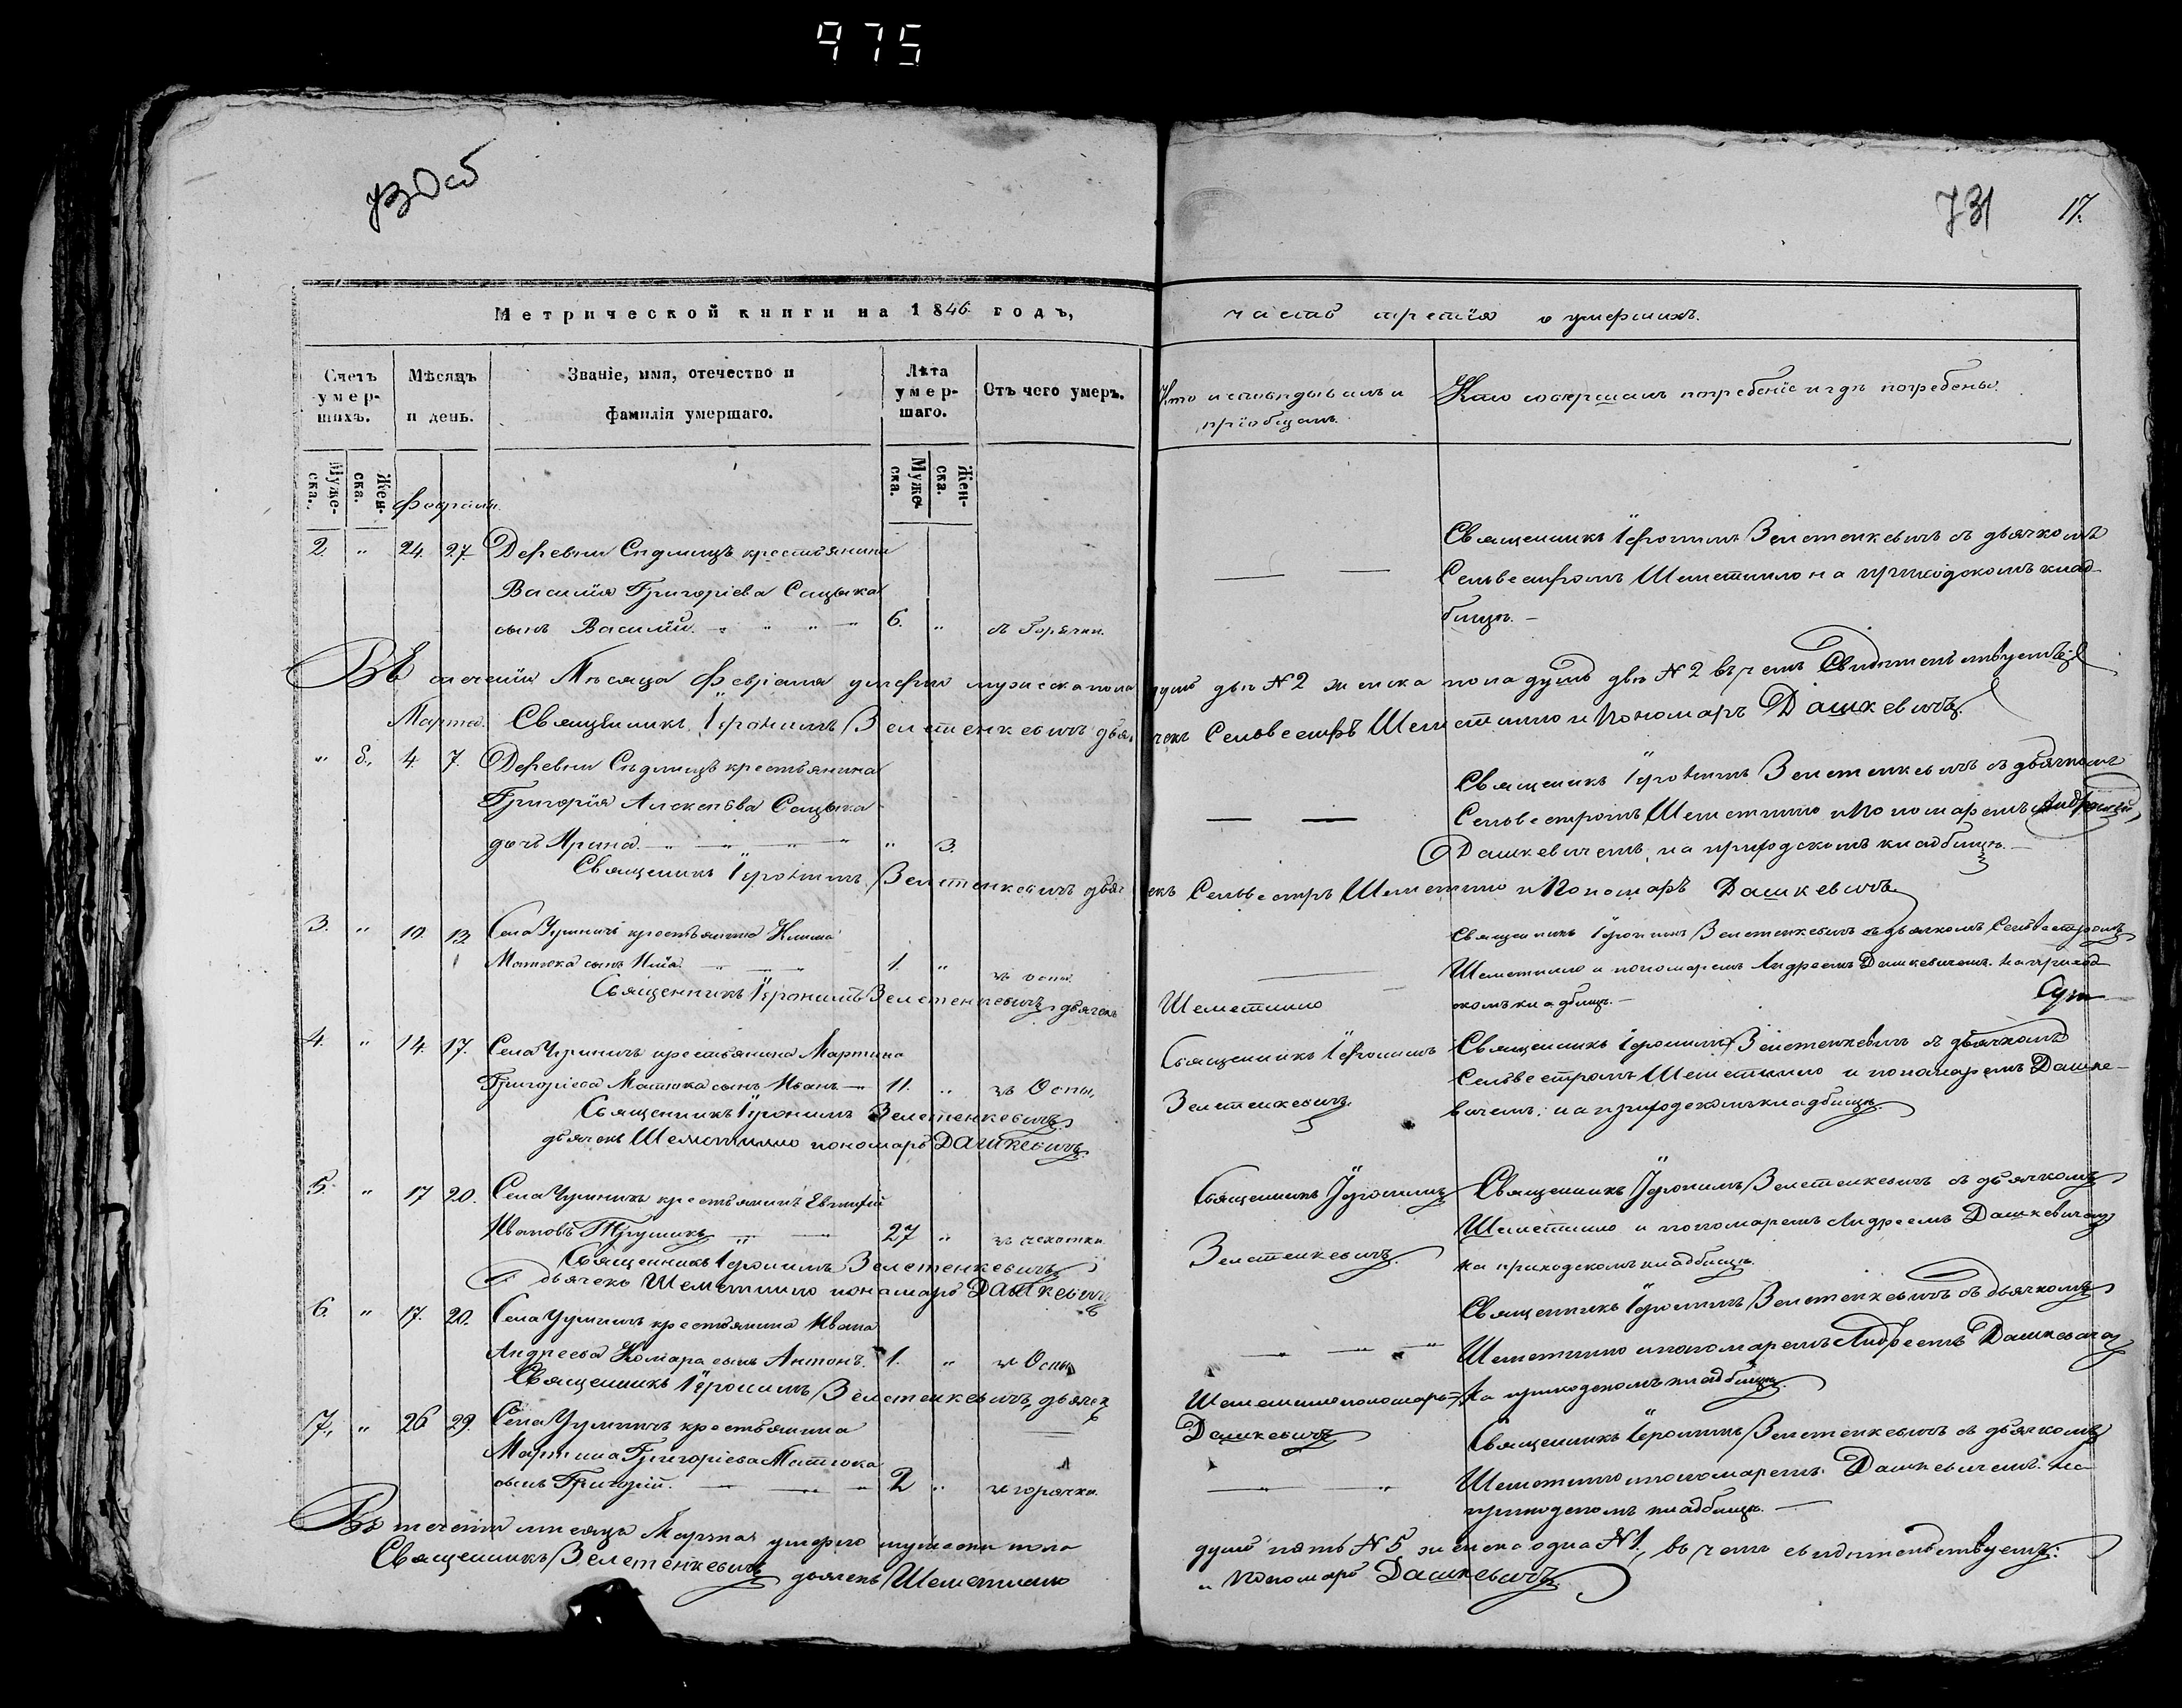 975
730об
731 17.
Метрической книги на 1846 годъ,
часть третія о умершихъ.
Счетъ умер-шихъ.
Мѣсяцъ и день.
Званіе, имя, отечество и фамилія умершаго.
Лѣта умер-шаго.
Отъ чего умеръ.
Кто исповѣдывалъ и пріобщалъ.
Кто совершалъ погребеніе и гдѣ погребены.
Муже-ска. Жен-ска.
Муже-ска. Жен-ска.
Февраля.
2. " 24. 27. Деревни Сѣдлищъ крестьянина
Василія Григоріева Сацыка
сынъ Василій. 6. " съ Горячки.
Священникъ Іеронимъ Зелетенкевичъ съ дьячкомъ
Сельвестромъ Шеметилло на приходскомъ клад-
бищѣ. –
Въ теченіи Мѣсяца Февраля умерли мужеска пола душъ двѣ № 2 женска пола душъ двѣ № 2 въ чемъ Свидѣтельствуетъ:
Священникъ Іеронимъ Зелетенкевичъ дьячекъ Сельвестръ Шеметилло и Пономарь Дашкевичъ.
Марта.
" 4. 7. Деревни Сѣдлищъ крестьянина
Григорія Алексѣева Сацыка
дочь Ярина. " 3.
Священникъ Іеронимъ Зелетенкевичъ съ дьячкомъ
Сельвестромъ Шеметилло и Пономаремъ Андреемъ
Дашкевичемъ, на приходскомъ кладбищѣ. –
Священникъ Іеронимъ Зелетенкевичъ дьячекъ Сельвестръ Шеметилло и Пономарь Дашкевичъ.
3. " 10. 13. Села крестьянина Клима
Матюка сынъ 1. " съ оспы.
Священникъ Іеронимъ Зелетенкевичъ съ дьячкомъ Сельвестромъ
Шеметилло и пономаремъ Андреемъ Дашкевичемъ. на приход-
скомъ кладбищѣ. –
Священникъ Іеронимъ Зелетенкевичъ, дьячекъ Шеметилло
4. " 14. 17. Села крестьянина Мартина
Григоріева Матюка сынъ Иванъ – 11. " съ Оспы,
Священникъ Іеронимъ
Зелетенкевичъ.
Священникъ Іеронимъ Зелетенкевичъ съ дьячкомъ
Сельвестромъ Шеметилло и пономаремъ Дашке-
вичемъ. на приходскомъ кладбищѣ.
Священникъ Іеронимъ Зелетенкевичъ
дьячекъ Шеметилло пономарь Дашкевичъ.
5. " 17 20. Села крестьянинъ Евтихій
Ивановъ Трушикъ 27 " съ чехотки
Священникъ Іеронимъ
Зелетенкевичъ.
Священникъ Іеронимъ Зелетенкевичъ съ дьячкомъ
Шеметилло и пономаремъ Андреемъ Дашкевичемъ
на приходскомъ кладбищѣ.
Священникъ Іеронимъ Зелетенкевичъ
дьячекъ Шеметилло пономарь Дашкевичъ
6. " 17. 20. Села крестьянина Ивана
Андреева Комара сынъ Антонъ. 1. " съ Оспы
Священникъ Іеронимъ Зелетенкевичъ съ дьячкомъ
Шеметилло и пономаремъ Андреемъ Дашкевичемъ
на приходскомъ кладбищѣ.
Священникъ Іеронимъ Зелетенкевичъ, дьячекъ Шеметилло пономарь
Дашкевичъ
7., " 26 29. Села крестьянина
Мартина Григоріева Матюка
сынъ Григорій. 2 " съ горячки.
Священникъ Іеронимъ Зелетенкевичъ съ дьячкомъ
Шеметилло и пономаремъ Дашкевичемъ. на
приходскомъ кладбищѣ. –
Въ теченіи мѣсяца Марта умерло мужеска пола душъ пять № 5 женска одна № 1., въ чемъ свидѣтельствуетъ:
Священникъ Зелетенкевичъ дьячекъ Шеметилло и Пономарь Дашкевичъ